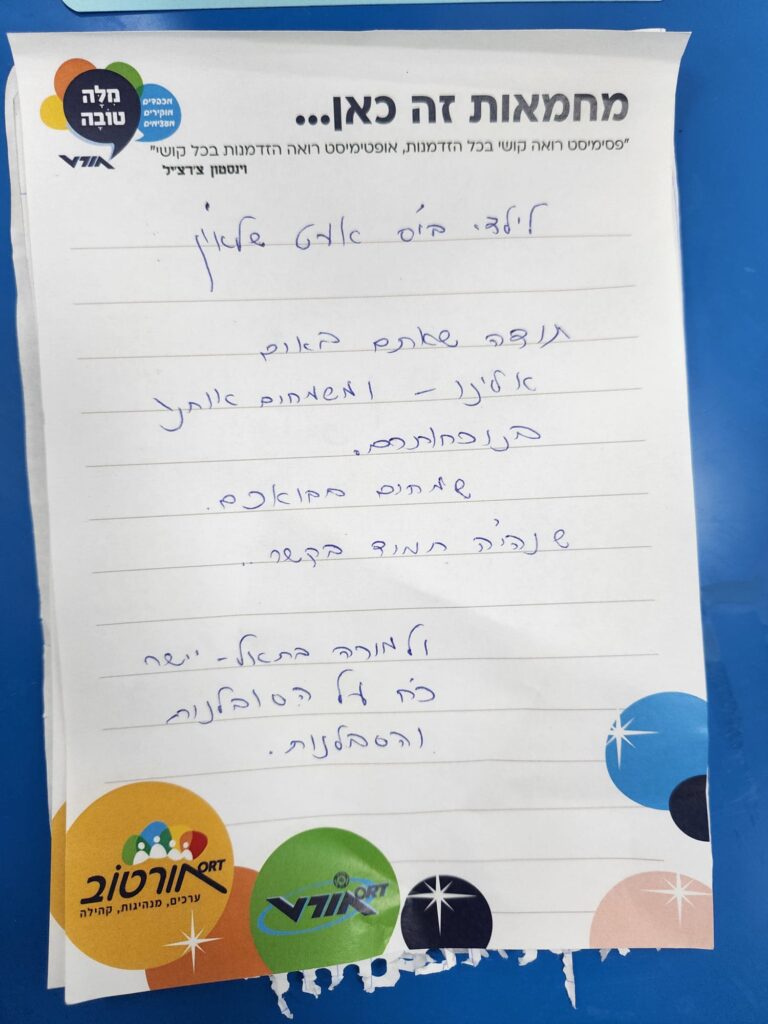 מִלָּה
טוֹבָה
מכבדים
אורט
מחמאות זה כאן...
"פסימיסט רואה קושי בכל הזדמנות, אופטימיסט רואה הזדמנות בכל קושי"
וינסטון צ'רצ'יל
לילדי בי"ס אורט
תודה שאתם באים
אלינו - ומשמחים אותנו
בנוכחותכם.
שמחים בבואכם.
שנהיה תמיד בקשר..
ולמורה בתאל - יישר
כח על הסובלנות
והסבלנות.
ORT
אורטוב
ערכים, מנהיגות, קהילה
ORT
אורט